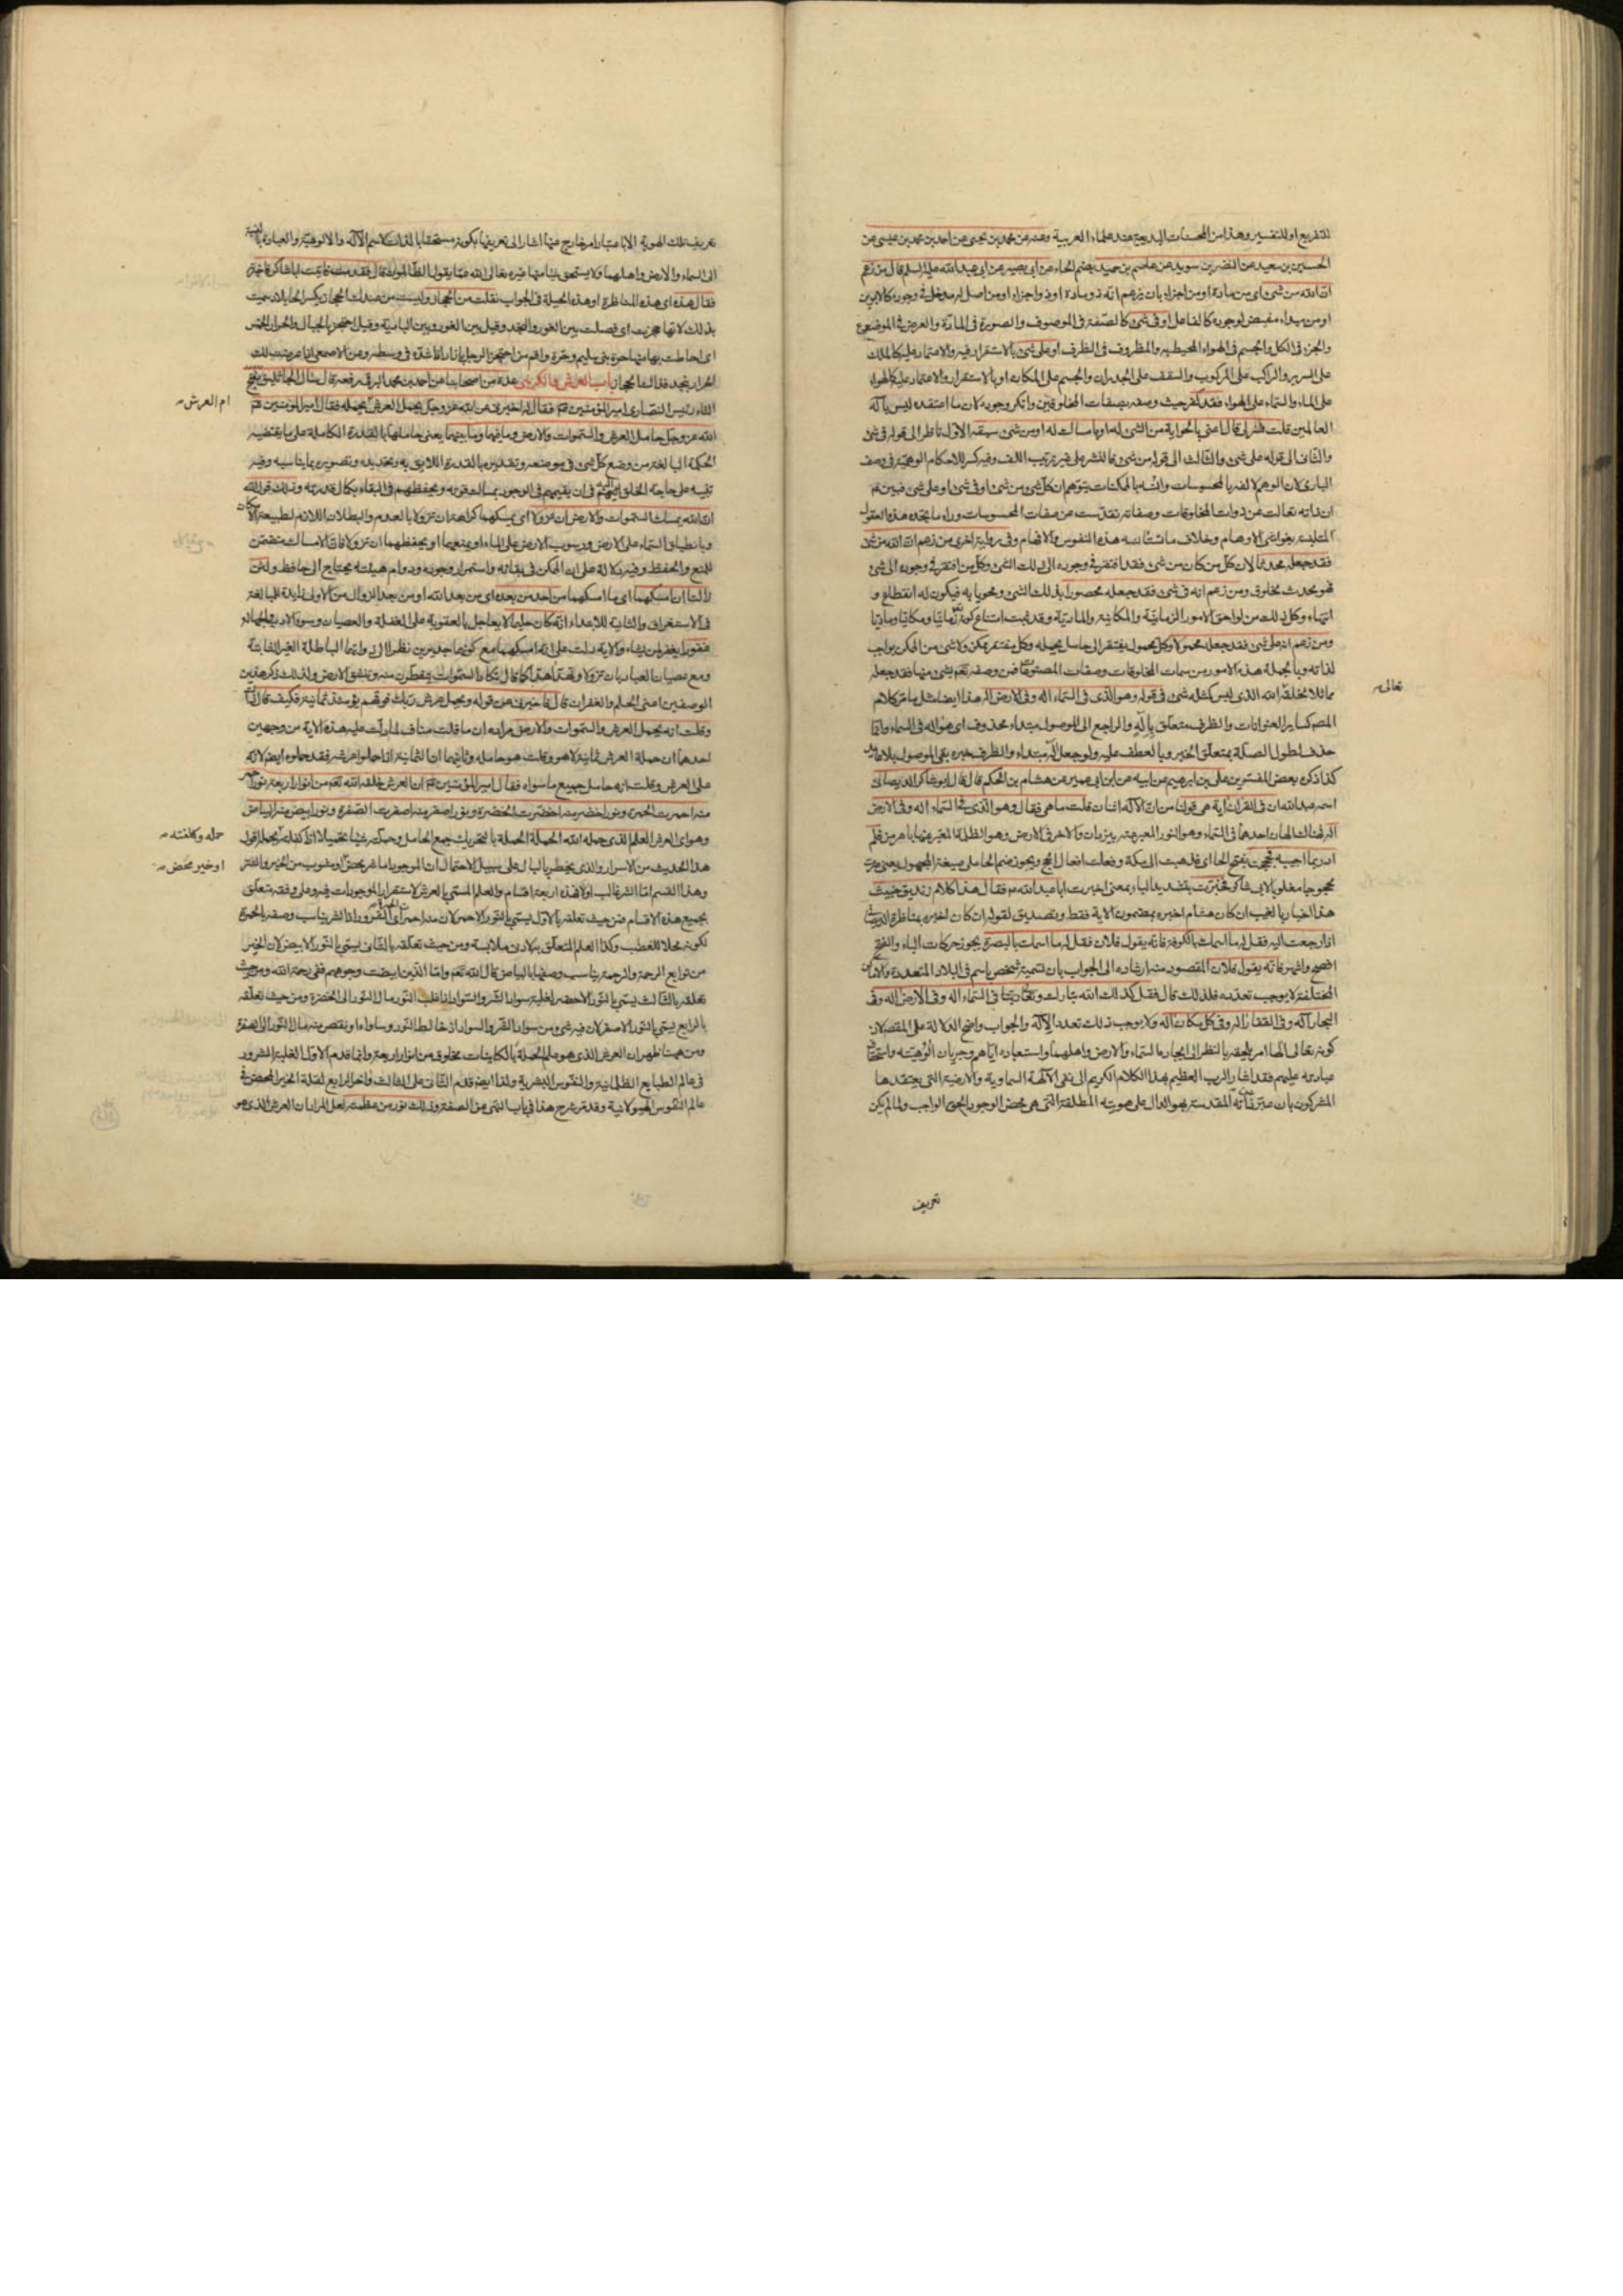 للتفريع او للتفسير وهذا من المحسنات البديعية عند علماء العربية وعنه عن محمد بن يحيى عن احمد بن محمد بن عيسى عن
الحسين بن سعيد عن النضر بن سويد عن عاصم بن حميد بضم الحاء عن ابى بصير عن ابى عبد الله عليه السلم قال من زعم
ان الله من شئ اى من مادة او من اجزاء بان يزعم انه ذو مادة او ذو اجزاء او من اصل له مدخل فى وجوده كالابوين
او من مبداء مفيض لوجوده كالفاعل او فى شئ كالصفة فى الموصوف والصورة فى المادة والعرض فى الموضوع
والجزء فى الكل والجسم فى الهواء المحيط به والمظروف فى الظرف او على شئ بالاستقرار فيه والاعتماد عليه كالملك
على السرير والراكب على المركوب والسقف على الجدران والجسم على المكان او بالاستقرار والاعتماد عليه كالهواء
على الماء والسماء على الهواء فقد كفر حيث وصفه بصفات المخلوقين وانكر وجوده لان ما اعتقده ليس باله
العالمين قلت فسر لى قال اعنى بالحواية من الشئ له او بامساك له او من شئ سبقه الاول ناظر الى قوله فى شئ
والثانى الى قوله على شئ والثالث الى قوله من شئ فالنشر على غير ترتيب اللف وفيه كسر للاحكام الوهمية فى وصف
البارى لان الوهم لالفه بالمحسوسات وانسه بالممكنات يتوهم ان كل شئ من شئ او فى شئ او على شئ فبين ع
ان ذاته تعالت عن ذوات المخلوقات وصفاته تقدست عن صفات المحسوسات وراء ما يجده هذه العقول
المتلبسة بغواشى الاوهام وبخلاف ما تستانسه هذه النفوس والافهام وفى رواية اخرى من زعم ان الله من شئ
فقد جعله محدثا لان كل من كان من شئ فقد افتقر فى وجوده الى ذلك الشئ وكل من افتقر فى وجوده الى شئ
فهو محدث مخلوق ومن زعم انه فى شئ فقد جعله محصورا بذلك الشئ ومحويا به فيكون له انقطاع و
انتهاء وكل ذلك من لواحق الامور الزمانية والمكانية والمادية وقد ثبت امتناع كونه زمانيا ومكانيا وماديا
ومن زعم انه على شئ فقد جعله محمولا وكل محمول يفتقر الى حامل يحمله وكل مفتقر ممكن ولا شئ من الممكن بواجب
لذاته وبالجملة هذه الامور من سمات المخلوقات وصفات المصنوعات فمن وصفه تعم بشئ منها فقد جعله
مماثلا لخلقه الله الذى ليس كمثله شئ فى قوله وهو الذى فى السماء اله وفى الارض اله هذا ايضا مثل ما مر كلام
المصم كساير العنوانات والظرف متعلق باله والراجع الى الموصول مبتداء محذوف اى هو اله فى السماء وانما
حذف لطول الصلة بمتعلق الخبر وبالعطف عليه ولو جعل اله مبتداء والظرف خبره بقى الموصول بلا عايد
كذا ذكره بعض المفسرين على بن ابرهيم عن ابيه عن ابن ابى عمير عن هشام بن الحكم قال قال ابو شاكر الديصانى
اسمه عبد الله ان فى القران اية هى قولنا من ان الاله اثنان قلت ما هى فقال وهو الذى فى السماء اله وفى الارض
اله فهناك الهان احدهما فى السماء وهو النور المعبر عنه بيزدان والاخر فى الارض وهو الظلمة المعبر عنها باهرمن فلم
ادر بما اجيبه فحججت بفتح الحاء اى فذهبت الى مكة وفعلت افعال الحج ويجوز ضم الحاء على صيغة المجهول يعنى صرت
محجوجا مغلوبا لابى شاكر فخبرت بتشديد الباء بمعنى اخبرت ابا عبد الله ع فقال هذا كلام زنديق خبيث
هذا اخبار بالغيب ان كان هشام اخبره بمضمون الاية فقط وتصديق لقوله ان كان اخبره بمناظرة الديصانى
اذا رجعت اليه فقل له ما اسمك بالكوفة فانه يقول فلان فقل له ما اسمك بالبصرة يجوز حركات الباء والفتح
افصح واشهر فانه يقول فلان المقصود منه ارشاده الى الجواب بان تسمية شخص باسم فى البلاد المتعددة والاماكن
المختلفة لا يوجب تعدده فلذلك قال فقل كذلك الله تبارك وتعالى ربنا فى السماء اله وفى الارض اله وفى
البحار اله وفى القفار اله وفى كل مكان اله ولا يوجب ذلك تعدد الاله والجواب واضح الدلالة على المقصم لان
كونه تعالى الها امر يلحقه بالنظر الى ايجاد ما السماء والارض واهلهما واستعباده اياهم وجريان الوهيته واستحقاق
عبادته عليهم فقد اشار الرب العظيم بهذا الكلام الكريم الى نفى الالهة السماوية والارضية التى يعتقدها
المشركون بان ميز ذاته المقدسة بهو الدال على هويته المطلقة التى هى محض الوجود الحق الواجب ولما لم يكن
تعالى
تعريف
تعريف تلك الهوية الا باعتبار امر خارج عنها اشار الى تعريفها بكونه مستحقا بالذات لاسم الاله والالوهية والعبادة بالنسبة
الى السماء والارض واهلهما ولا يستحق شيئا منها غيره تعالى الله عما يقول الظالمون قال فقدمت فاتيت ابا شاكر فاخبرته
فقال هذه اى هذه المناظرة او هذه الحيلة فى الجواب نقلت من الحجاز وليست من عندك الحجاز بكسر الحاء بلاد سميت
بذلك لانها حجزت اى فصلت بين الغور والنجد وقيل بين الغور وبين البادية وقيل احتجز بالجبال والحرار الخمس
اى احاطت بها منها حرة بنى سليم وحرة واقم من احتجز الرجل بازار اذا شده فى وسطه وعن الاصمعى اذا عرضت لك
الحرار بنجد فذاك الحجاز باب العرش والكرسى عدة من اصحابنا عن احمد بن محمد البرقى رفعه قال سال الجاثليق بفتح
الثاء رئيس النصارى امير المؤمنين ع فقال له اخبرنى عن الله عز وجل يحمل العرش يحمله فقال امير المؤمنين ع
الله عز وجل حامل العرش والسموات والارض وما فيهما وما بينهما يعنى حاملها بالقدرة الكاملة على ما يقتضيه
الحكمة البالغة من وضع كل شئ فى موضعه وتقديره بالقدرة اللايق به وتحديده وتصويره بما يناسبه وفيه
تنبيه على حاجة الخلق اليه فى ان يقيمهم فى الوجود بمساك قوته ويحفظهم فى البقاء بكمال قدرته وذلك قول الله
ان الله يمسك السموات والارض ان تزولا اى يمسكهما كراهة ان تزولا بالعدم والبطلان اللازم لطبيعة الامكان
وبانطباق السماء على الارض ورسوب الارض على الماء او يمنعهما او يحفظهما ان تزولا فان الامساك متضمن
للمنع والحفظ وفيه دلالة على ان الممكن فى بقائه واستمرار وجوده ودوام هيئته يحتاج الى حافظ ولئن
زالتا ان امسكهما اى ما امسكهما من احد من بعده اى من بعد الله او من بعد الزوال من الاولى زايدة للمبالغة
فى الاستغراق والثانية للابتداء انه كان حليما لا يعاجل بالعقوبة على الغفلة والعصيان وسوء الادب والجهالة
غفورا يغفر لمن يشاء والاية دلت على انه امسكهما مع كونهما جديرين نظرا الى ذواتهما الباطلة الغير الثابتة
ومع عصيان العباد بان تزولا وتهدا هدا كما قال تكاد السموات يتفطرن منه وتنشق الارض ولذلك ذكر هذين
الوصفين اعنى الحلم والغفران قال فاخبرنى عن قوله ويحمل عرش ربك فوقهم يومئذ ثمانية فكيف قال ذلك
وقلت انه يحمل العرش والسموات والارض مراده ان ما قلت مناف لما دلت عليه هذه الاية من وجهين
احدهما ان حملة العرش ثمانية لا هو وقلت هو حامله وثانيهما ان الثمانية اذا حملوا عرشه فقد حملوه ايضا لانه
على العرش وقلت انه حامل جميع ما سواه فقال امير المؤمنين ع ان العرش خلقه الله تعم من انوار اربعة نور احمر
منه احمرت الحمرة ونور اخضر منه اخضرت الخضرة ونور اصفر منه اصفرت الصفرة ونور ابيض منه البياض
وهو اى العرش العلم الذى حمله الله الحملة الحملة بالتحريك جمع الحامل وحملته شيئا تحميلا اذا كلفته بحمله قوله
هذا الحديث من الاسرار والذى يخطر بالبال على سبيل الاحتمال ان الموجود اما شر محض او مشوب من الخير والشر
وهذا القسم اما الشر غالب اولا فهذه اربعة اقسام والعلم المسمى بالعرش لاستقرار الموجودات فيه وعلى وفقه متعلق
بجميع هذه الاقسام فمن حيث تعلقه بالاول يسمى بالنور الاحمر لان منه احمر اى الشرور ولذا الشر يناسب وصفه بالحمرة
لكونه محلا للغضب وكذا العلم المتعلق به لادنى ملابسة ومن حيث تعلقه بالثانى يسمى بالنور الابيض لان الخير
من توابع الرحمة والرحمة يناسب وصفها بالبياض قال الله تعم واما الذين ابيضت وجوههم ففى رحمة الله ومن حيث
تعلقه بالثالث يسمى بالنور الاخضر لغلبة سواد الشر والسواد اذا غلب النور مال النور الى الخضرة ومن حيث تعلقه
بالرابع يسمى بالنور الاصفر لان فيه شئ من سواد الشر والسواد اذا خالط النور وساواه او نقص منه مال النور الى الصفرة
ومن ههنا ظهر ان العرش الذى هو علم الحملة بالكاينات مخلوق من انوار اربعة وانما قدم الاول لغلبة الشرور
فى عالم الطبايع الظلمانية والنفوس البشرية ولذا ايضا قدم الثانى على الثالث واخر الرابع لقلة الخير المحض فى
عالم النفوس الهيولانية وقد مر شرح هذا فى باب النهى عن الصفة وذلك نور من عظمته لعل المراد ان العرش الذى هو
ام العرش
حمله وكلفته
او خير محض